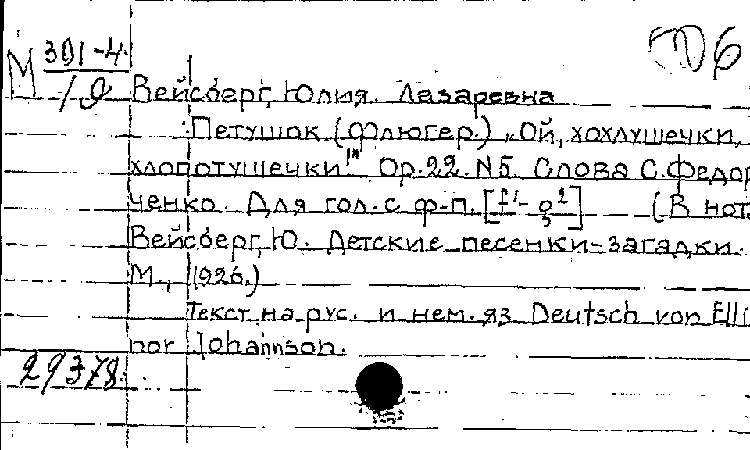 М 301-4
/9
Вейсберг, Юлия Лазаревна
Петушок (Флюгер.) „Ой, хохлушечки,
хлопотушечки!" Ор. 22. N5. Слова С. Федор
ченко. Для гол. с ф-п. (В нот.
Вейсберг, Ю. Детские песенки-загадки.
М., 1926.)
Текст на рус. и нем. яз. Deutsch von Elli
nor Johannson.
29378.